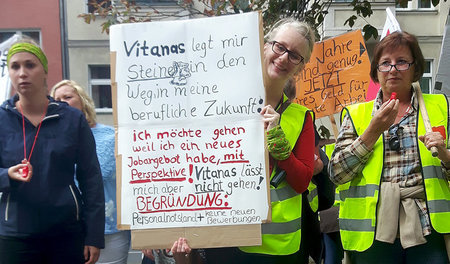 Vitanas legt mir
Steine in den
Weg, in meine
berufliche Zukunft!
ich möchte gehen
weil ich ein neues
Jobangebot habe, mit
Perspektive! Vitanas lässt
mich aber nicht gehen!
BEGRÜNDUNG!
Personalnotstand + keine neuen
Bewerbungen
Jahre
sind genug!
JETZT